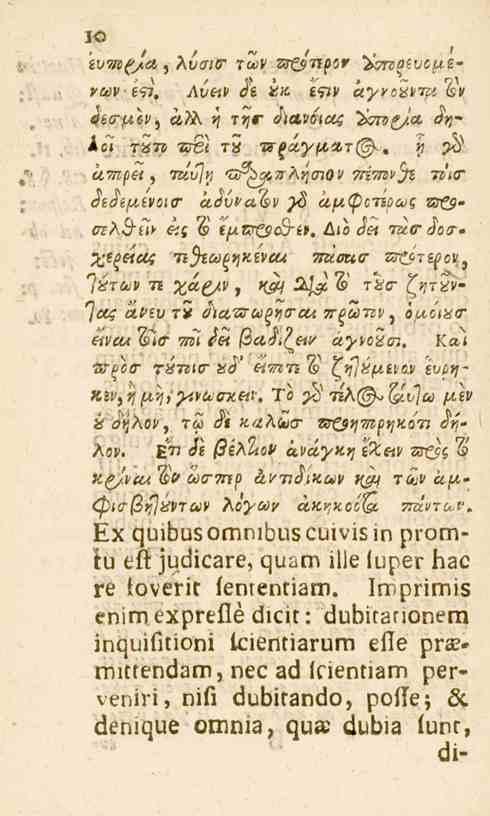 10
ἐυπορία, λύσισ τῶν πρότερον ἀπορευομέ-
νων ἐςὶ. Λύειν δὲ ȣ̓κ ἔςιν ἀγνοοῦντα τὸν
δεσμὸν, ἀλλ ἡ τῆσ διανόιας ἀπορία δη-
λοῖ τȣ͂το περὶ τȣ͂ πράγματος. ᾗ γὸ
ἀπορεῖ, τάυτη παραπλήσιον πέπονθε τοῖς
δεδεμένοισ ἀδύνατον γὸ ἀμφοτέρως προ-
σελθεῖν ἐις τὸ ἔμπροσθεν. Διὸ δεῖ τὰσ δοσ-
χερείας τεθεωρηκέναι πάσασ πρότερον,
τȣ́των τε χάριν, καὶ διὰ τὸ τȣ̀σ ζητοῦν-
τας ἄνευ τȣ͂ διαπορῆσαι πρῶτον, ὁμόιȣσ
εἶναι τοῖσ ποῖ δεῖ βαδίζειν ἀγνοοῦσι. Καὶ
πρὸσ τȣ́τοισ ȣ̓δ' εἴποτε τὸ ζητȣ́μενον ἕυρη-
κεν, ἢ μὴ, γινωσκειν. Τὸ γὸ τέλος τȣ́τῳ μὲν
ȣ̓ δῆλον, τῷ δὲ καλῶσ προηπορηκότι δῆ-
λον. Ετι δὲ βέλτιον ἀνάγκη ἔχειν πρὸς τὸ
κρίναι τὸν ὥσπερ ἀντιδίκων καὶ τῶν ἀμ-
φισβητȣ́ντων λόγων ἀκηκοότα πάντων.
Ex quibus omnibus cuivis in prom-
tu eſt judicare, quam ille ſuper hac
re foverit ſententiam. Imprimis
enim expreſſè dicit: dubitationem
inquiſitioni ſcientiarum eſſe præ-
mittendam, nec ad ſcientiam per-
veniri, niſi dubitando, poſſe; &
denique omnia, quæ dubia ſunt,
di-